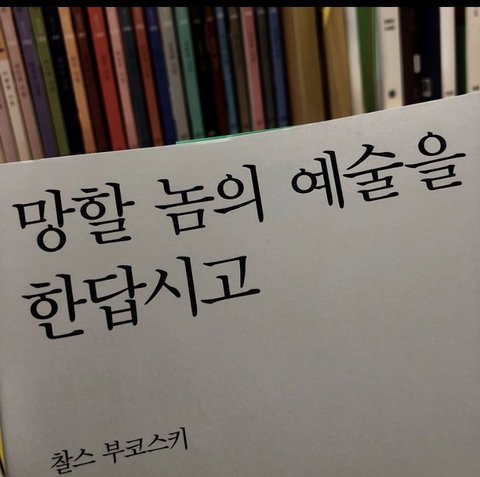 망할 놈의 예술을
한답시고
찰스 부코스키